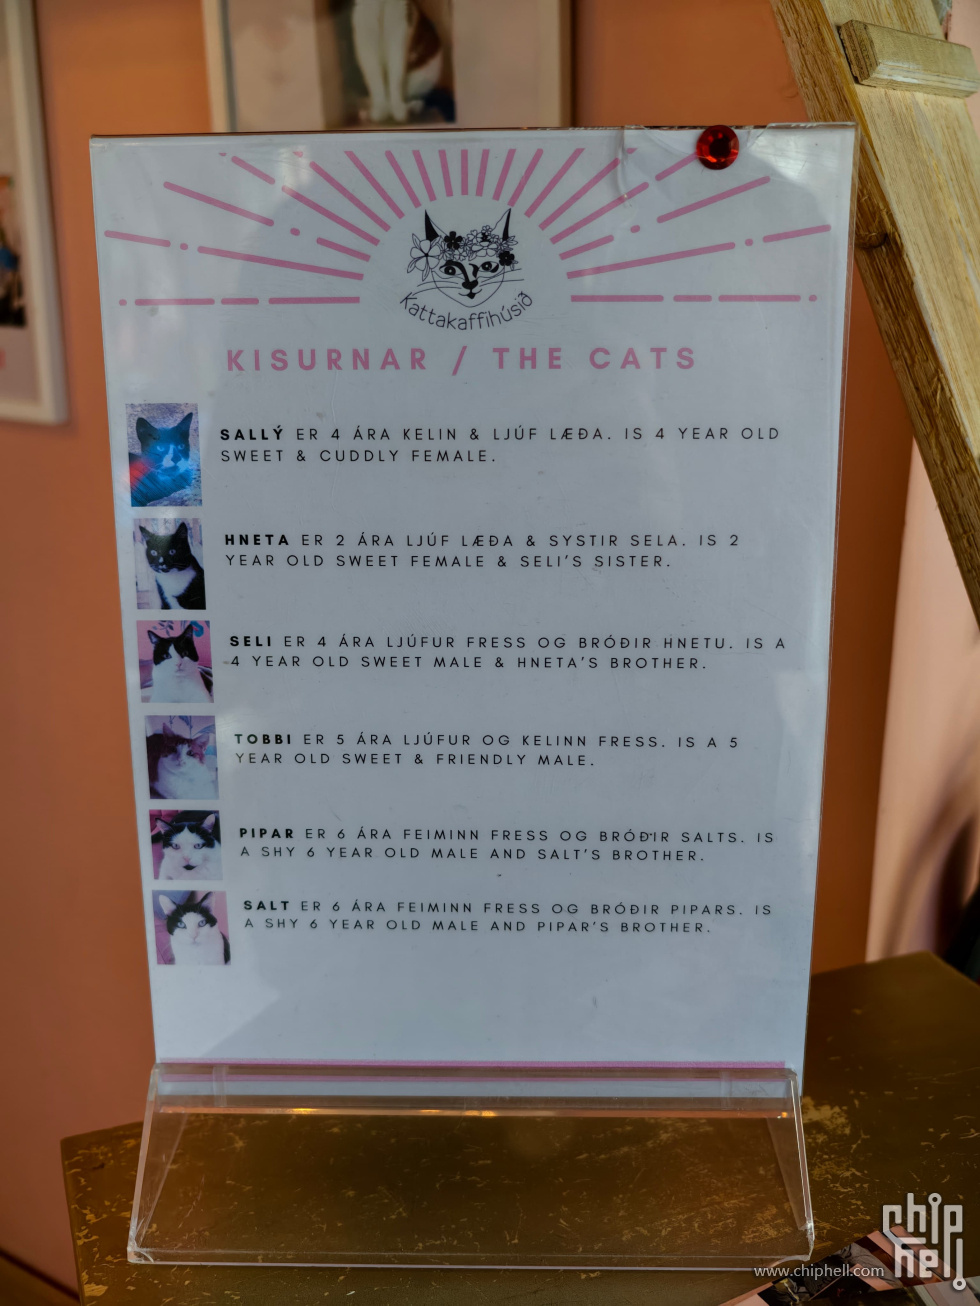 Kattakaffihúsið
KISURNAR / THE CATS
SALLÝ ER 4 ÁRA KELIN & LJÚF LÆÐA. IS 4 YEAR OLD
SWEET & CUDDLY FEMALE.
HNETA ER 2 ÁRA LJÚF LÆÐA & SYSTIR SELA. IS 2
YEAR OLD SWEET FEMALE & SELI'S SISTER.
SELI ER 4 ÁRA LJÚFUR FRESS OG BRÓÐIR HNETU. IS A
4 YEAR OLD SWEET MALE & HNETA'S BROTHER.
TOBBI ER 5 ÁRA LJÚFUR OG KELINN FRESS. IS A 5
YEAR OLD SWEET & FRIENDLY MALE.
PIPAR ER 6 ÁRA FEIMINN FRESS OG BRÓÐIR SALTS. IS
A SHY 6 YEAR OLD MALE AND SALT'S BROTHER.
SALT ER 6 ÁRA FEIMINN FRESS OG BRÓÐIR PIPARS. IS
A SHY 6 YEAR OLD MALE AND PIPAR'S BROTHER.
chip
hell
www.chiphell.com